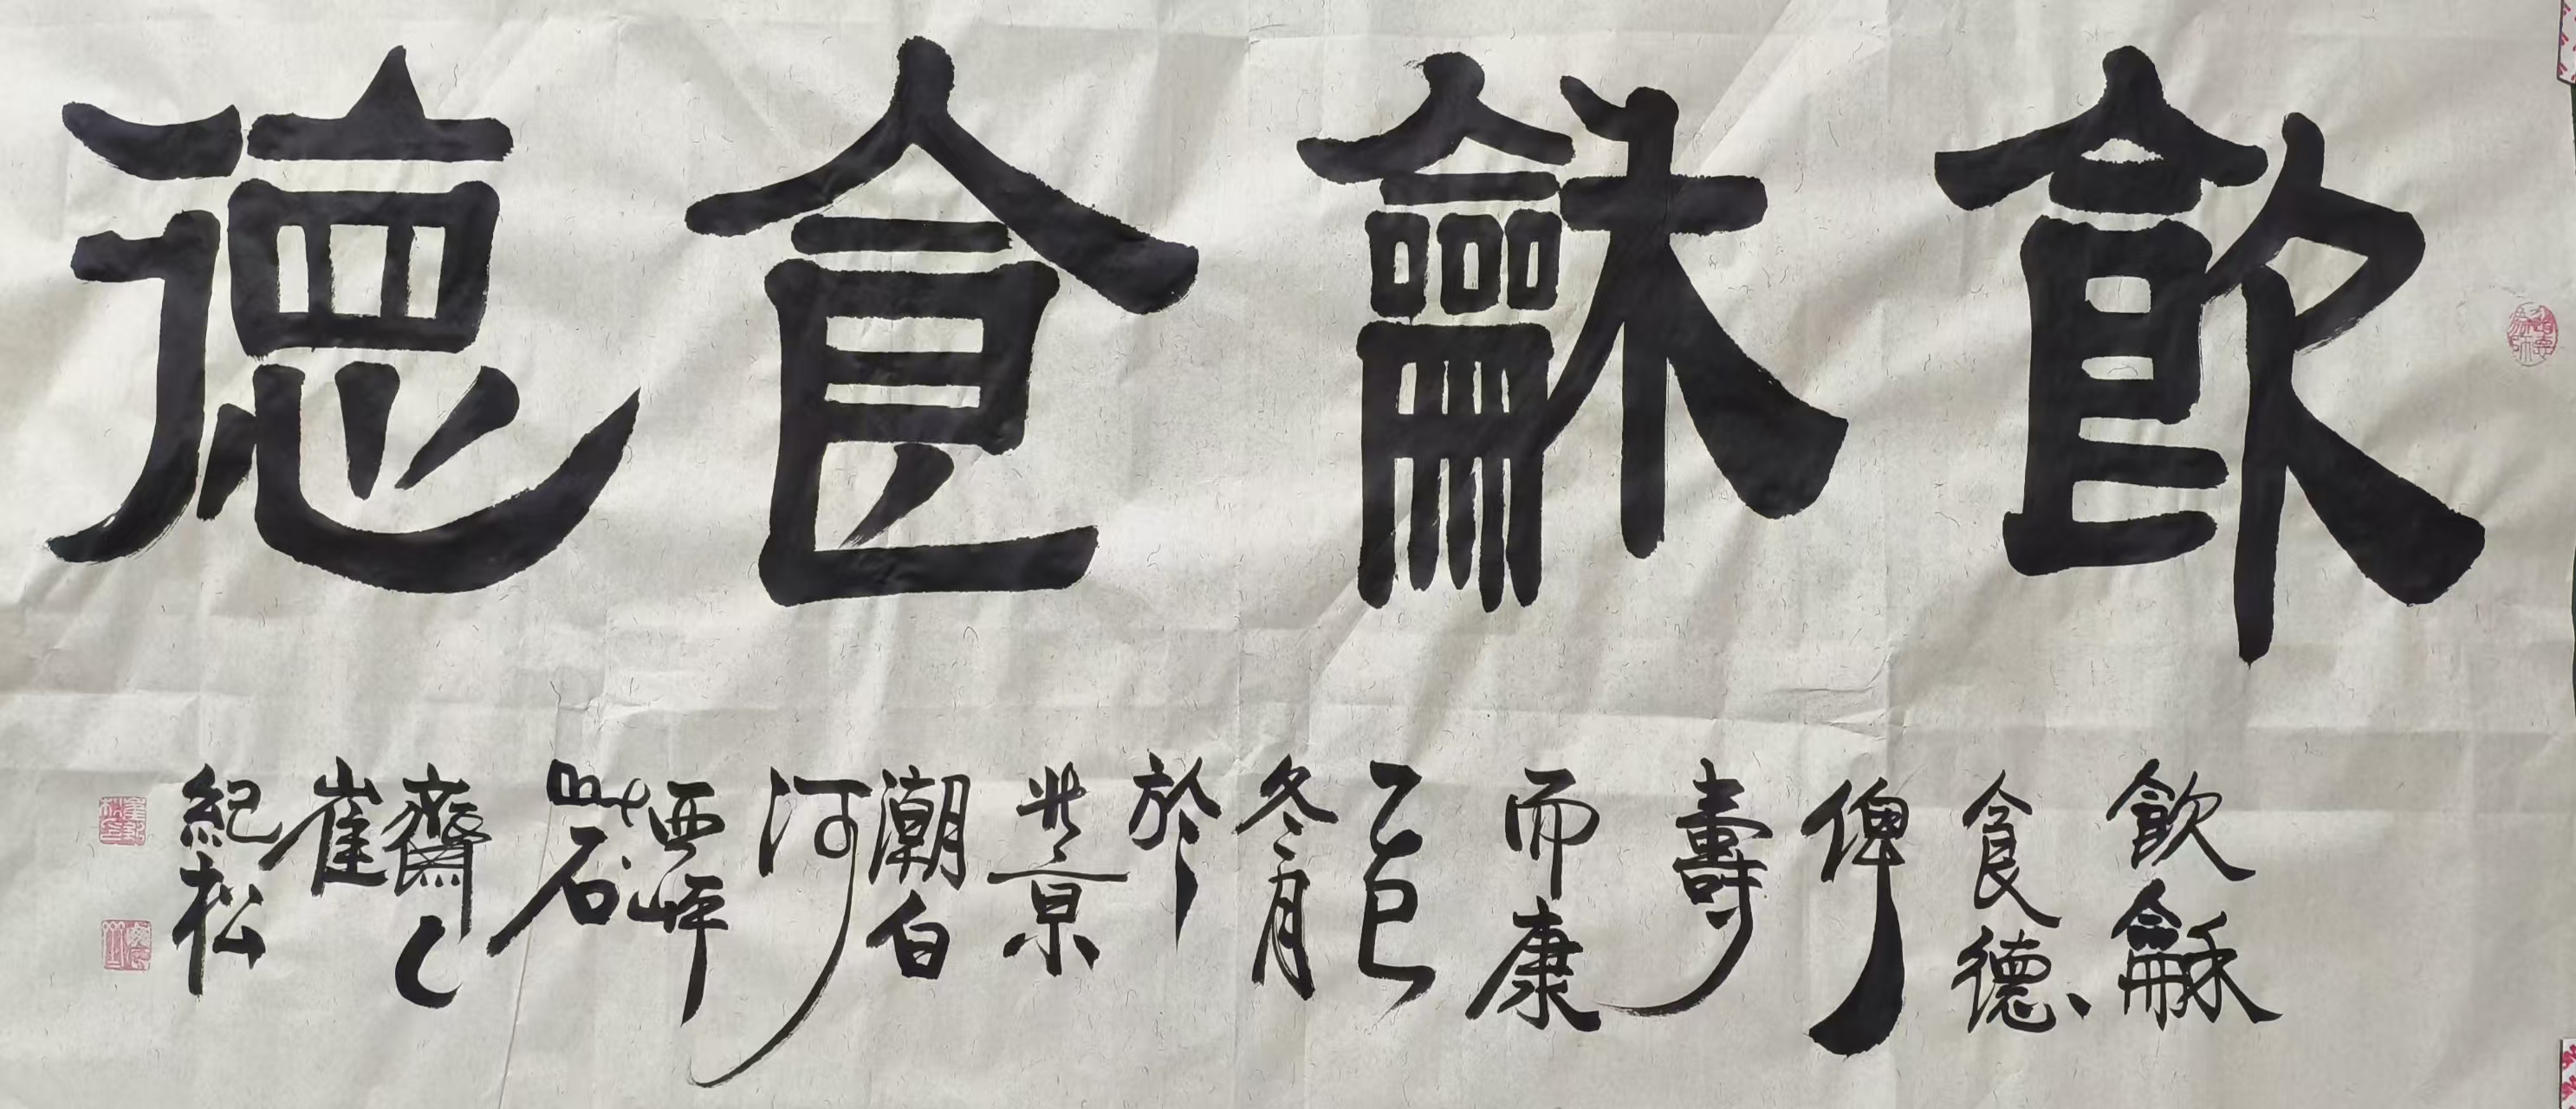 飲龢食德
飲龢
食德
俾
壽
而康
乙巳
冬月
於
北京
潮白
河
西岸
石
齋
崔
紀松